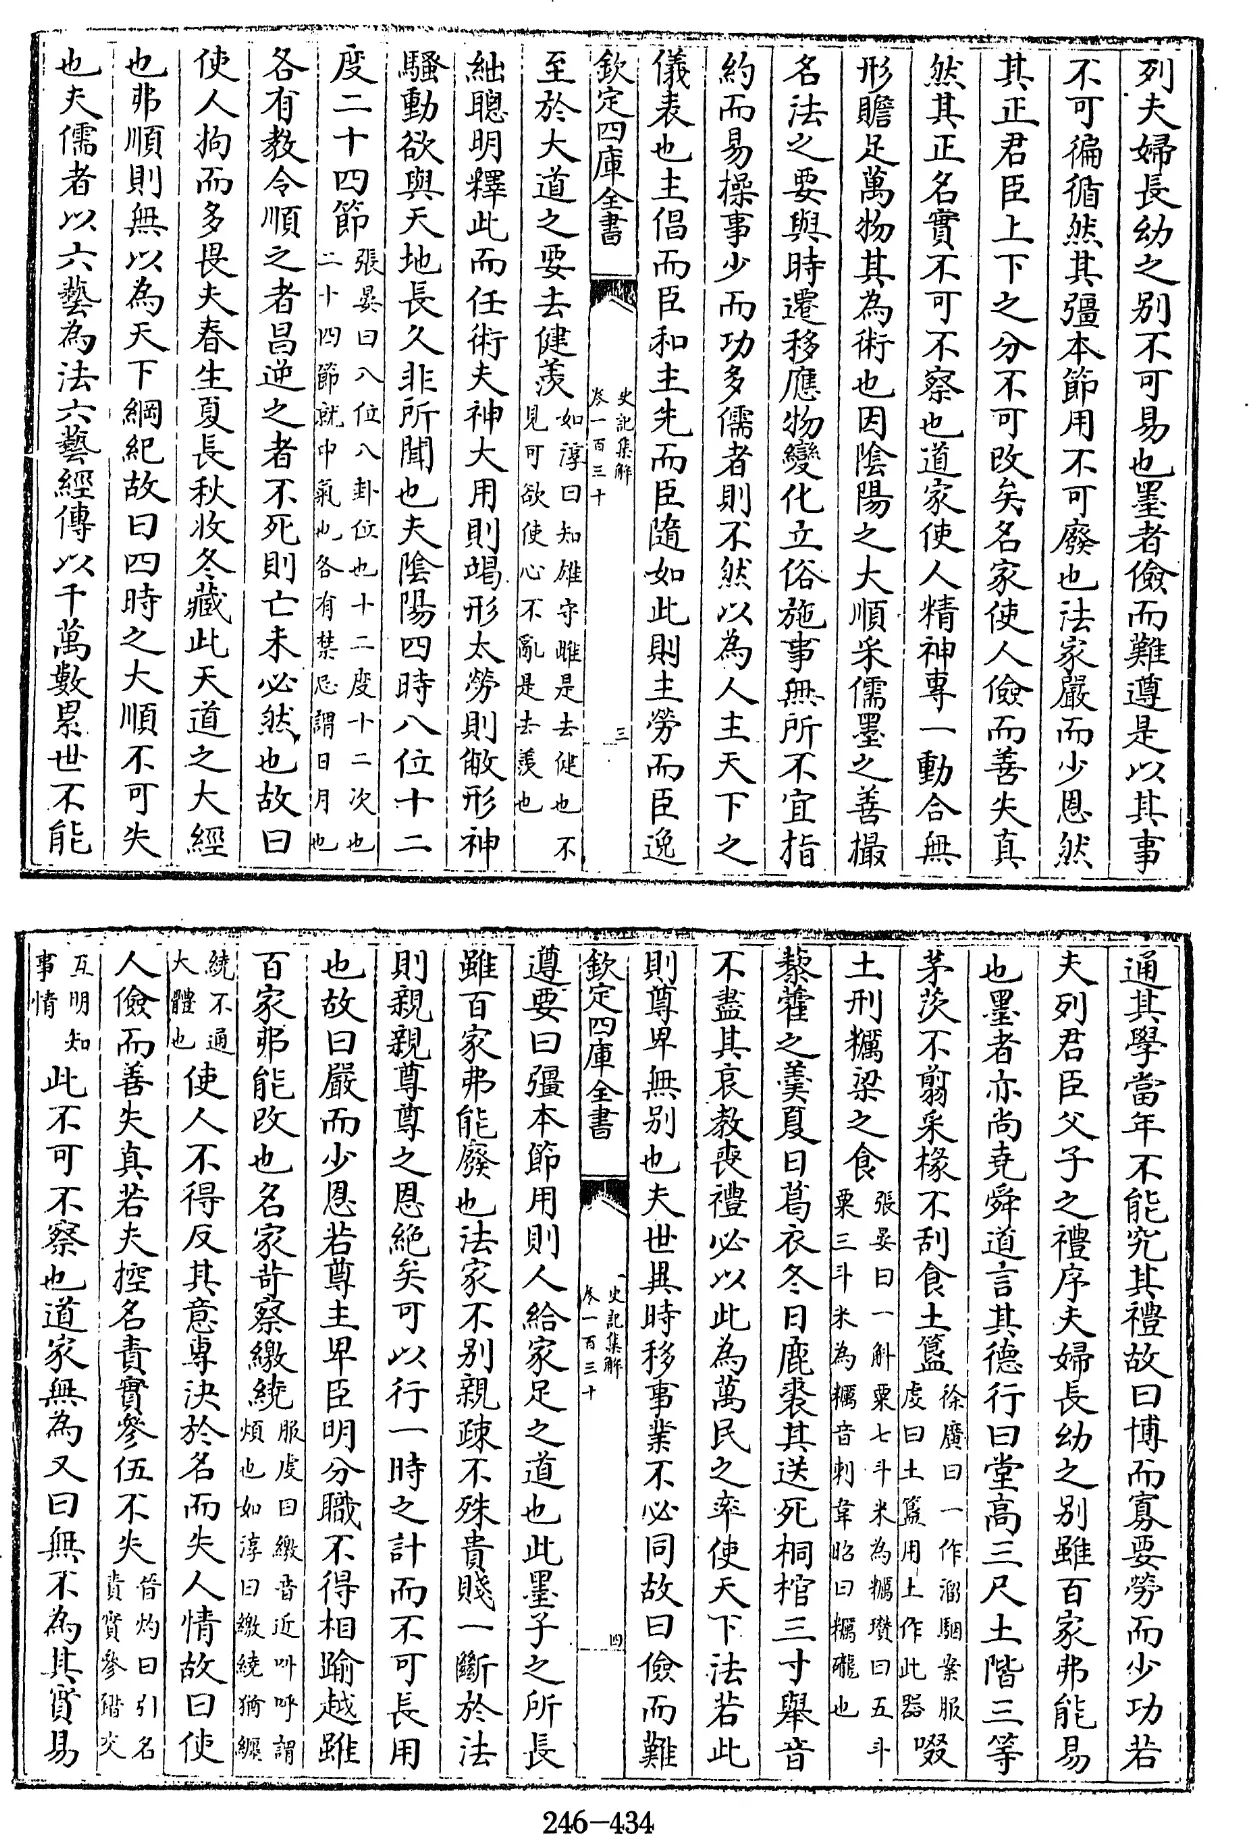 列夫婦長幼之别不可易也墨者儉而難遵是以其事
不可徧循然其彊本節用不可廢也法家嚴而少恩然
其正君臣上下之分不可改矣名家使人儉而善失真
然其正名實不可不察也道家使人精神專一動合無
形贍足萬物其為術也因陰陽之大順采儒墨之善撮
名法之要與時遷移應物變化立俗施事無所不宜指
約而易操事少而功多儒者則不然以為人主天下之
儀表也主倡而臣和主先而臣隨如此則主勞而臣逸
欽定四庫全書
史記集解
卷一百三十
三
至於大道之要去健羨如淳曰知雄守雌是去健也不
見可欲使心不亂是去羨也
絀聰明釋此而任術夫神大用則竭形太勞則敝形神
騷動欲與天地長久非所聞也夫陰陽四時八位十二
度二十四節張晏曰八位八卦位也十二度十二次也
二十四節就中氣也各有禁忌謂日月也
各有教令順之者昌逆之者不死則亡未必然也故曰
使人拘而多畏夫春生夏長秋收冬藏此天道之大經
也弗順則無以為天下綱紀故曰四時之大順不可失
也夫儒者以六藝為法六藝經傳以千萬數累世不能
通其學當年不能究其禮故曰博而寡要勞而少功若
夫列君臣父子之禮序夫婦長幼之别雖百家弗能易
也墨者亦尚堯舜道言其德行曰堂高三尺土階三等
茅茨不翦采椽不刮食土簋徐廣曰一作溜駰案服
虔曰土簋用土作此器啜
土刑糲梁之食張晏曰一斛粟七斗米為糲瓚曰五斗
粟三斗米為糲音剌韋昭曰糲䃺也
藜藿之羹夏日葛衣冬日鹿裘其送死桐棺三寸舉音
不盡其哀教喪禮必以此為萬民之率使天下法若此
則尊卑無别也夫世異時移事業不必同故曰儉而難
欽定四庫全書
史記集解
卷一百三十
四
遵要曰彊本節用則人給家足之道也此墨子之所長
雖百家弗能廢也法家不别親疎不殊貴賤一斷於法
則親親尊尊之恩絶矣可以行一時之計而不可長用
也故曰嚴而少恩若尊主卑臣明分職不得相踰越雖
百家弗能改也名家苛察繳繞服虔曰繳音近叫呼謂
煩也如淳曰繳繞猶纏
繞不通
大體也使人不得反其意專決於名而失人情故曰使
人儉而善失真若夫控名責實參伍不失晉灼曰引名
責實參錯交
互明知
事情此不可不察也道家無為又曰無不為其實易
246-434